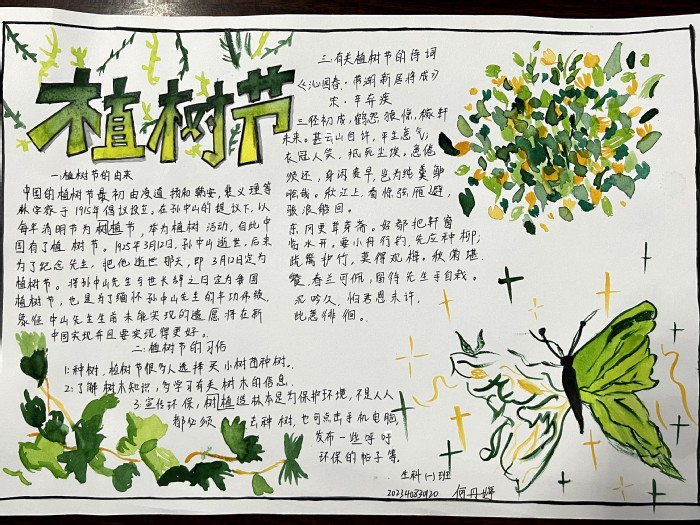 植树节
一:植树节的由来
中国的植树节最初由凌道扬和韩安,裴义理等
林学家于1915年倡议设立,在孙中山的提议下,以
每年清明节为树植节,举为植树活动,自此中
国有了植树节。1925年3月12日,孙中山逝世,后来
为了纪念先生,把他逝世那天,即3月12定为
植树节。将孙中山先生与世长辞之日定为我国
植树节,也是为了缅怀孙中山先生的丰功伟绩,
象征中山先生生前未能实现的遗愿将在新
中国实现并且要实现得更好。
二:植树节的习俗
1:种树,植树节很多人选择买小树苗种树。
2:了解树木知识,多学习有关树木的信息.
3:宣传环保,树植造林本是为保护环境,不是人人
都必须 去种树,也可点击手机电脑,
发布一些呼吁
环保的帖子等.
三:有关植树节的诗词
《沁园春·带湖新居将成》
宋·辛弃疾
三径初成,鹤怨猿惊,稼轩
未来。甚云山自许,平生意气;
衣冠人笑,抵死尘埃。意倦
须还,身闲贵早,岂为莼羹鲈
脍哉。秋江上,看惊弦雁避,
骇浪船回。
东冈更葺茅斋。好都把轩窗
临水开。要小舟行钓,先应种柳;
疏篱护竹,莫碍观梅。秋菊堪
餐,春兰可佩,留待先生手自栽。
沉吟久,怕君恩未许,
此意徘徊。
生科(一)班
20234083020 何丹婷